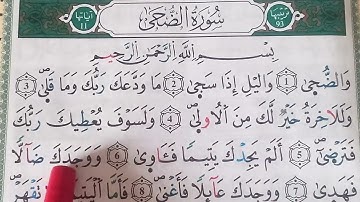 ترتيبها 93
سُورَةُ الضُّحَىٰ
آياتها 11
بِسْمِ اللَّهِ الرَّحْمَٰنِ الرَّحِيمِ
وَالضُّحَىٰ ① وَاللَّيْلِ إِذَا سَجَىٰ ② مَا وَدَّعَكَ رَبُّكَ وَمَا قَلَىٰ ③
وَلَلْآخِرَةُ خَيْرٌ لَّكَ مِنَ الْأُولَىٰ ④ وَلَسَوْفَ يُعْطِيكَ رَبُّكَ
فَتَرْضَىٰ ⑤ أَلَمْ يَجِدْكَ يَتِيمًا فَـَٔاوَىٰ ⑥ وَوَجَدَكَ ضَآلًّا
فَهَدَىٰ ⑦ وَوَجَدَكَ عَآئِلًا فَأَغْنَىٰ ⑧ فَأَمَّا الْيَتِيمَ فَلَا تَقْهَرْ